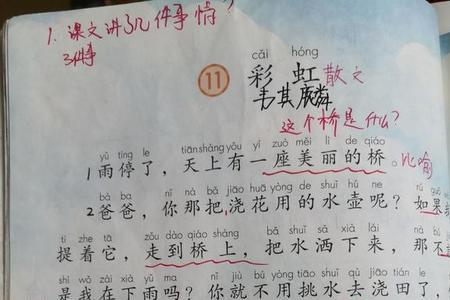 1. 课文讲了几件事情？
3件事
cǎi hóng
11 彩虹 散文
韦其麟
这个桥是什么？
yǔ tíng le tiān shàng yǒu yí zuò měi lì de qiáo
1雨停了，天上有一座美丽的桥。比喻
bà ba nǐ nà bǎ jiāo huā yòng de shuǐ hú ne rú guǒ
2爸爸，你那把浇花用的水壶呢？如果
tí zhe tā zǒu dào qiáo shàng bǎ shuǐ sǎ xià lái nà
提着它，走到桥上，把水洒下来，那不
shì wǒ zài xià yǔ ma nǐ jiù bú yòng tiāo shuǐ qù jiāo tián le
是我在下雨吗？你就不用挑水去浇田了，